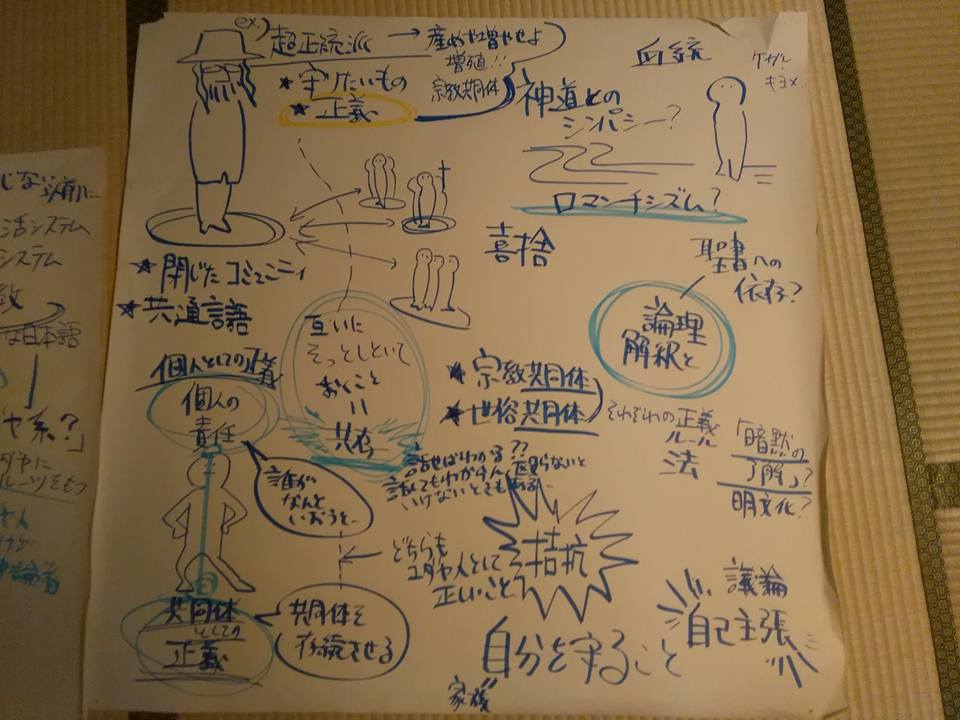 ex)
超正統派 → 産めや増やせよ
増殖!!
宗教共同体
★守りたいもの
★正義
神道との
シンパシー?
血統
ケガレ
キヨメ
ロマンチシズム?
喜捨
★閉じたコミュニティ
★共通言語
聖書への
依存?
論理
解釈と
互いに
そっとしといて
おくこと
=
共存
個人としての正義
個人の
責任
★宗教共同体
★世俗共同体
それぞれの正義
ルール
法
「暗黙の
了解」?
明文化?
話せばわかる??
誰が
なんと
いおうと…
← どちらも
ユダヤ人として
正しいこと
拮抗
共同体
としての
正義
共同体を
存続させる
議論
自己主張
自分を守ること
家族
活システム
システム
な日本語
ヤ系?」
ダヤに
ルーツをもつ
論者